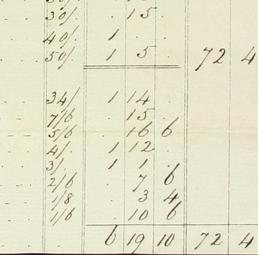 30/. . 15 .
40/. 1 . .
50/. 1 5 . 72 4
34/ 1 14 .
7/6 . 15 .
5/6 . 16 6
4/. 1 12 .
3/ 1 1 .
2/6 . 7 6
1/8 . 3 4
1/6 . 10 6
6 19 10 72 4